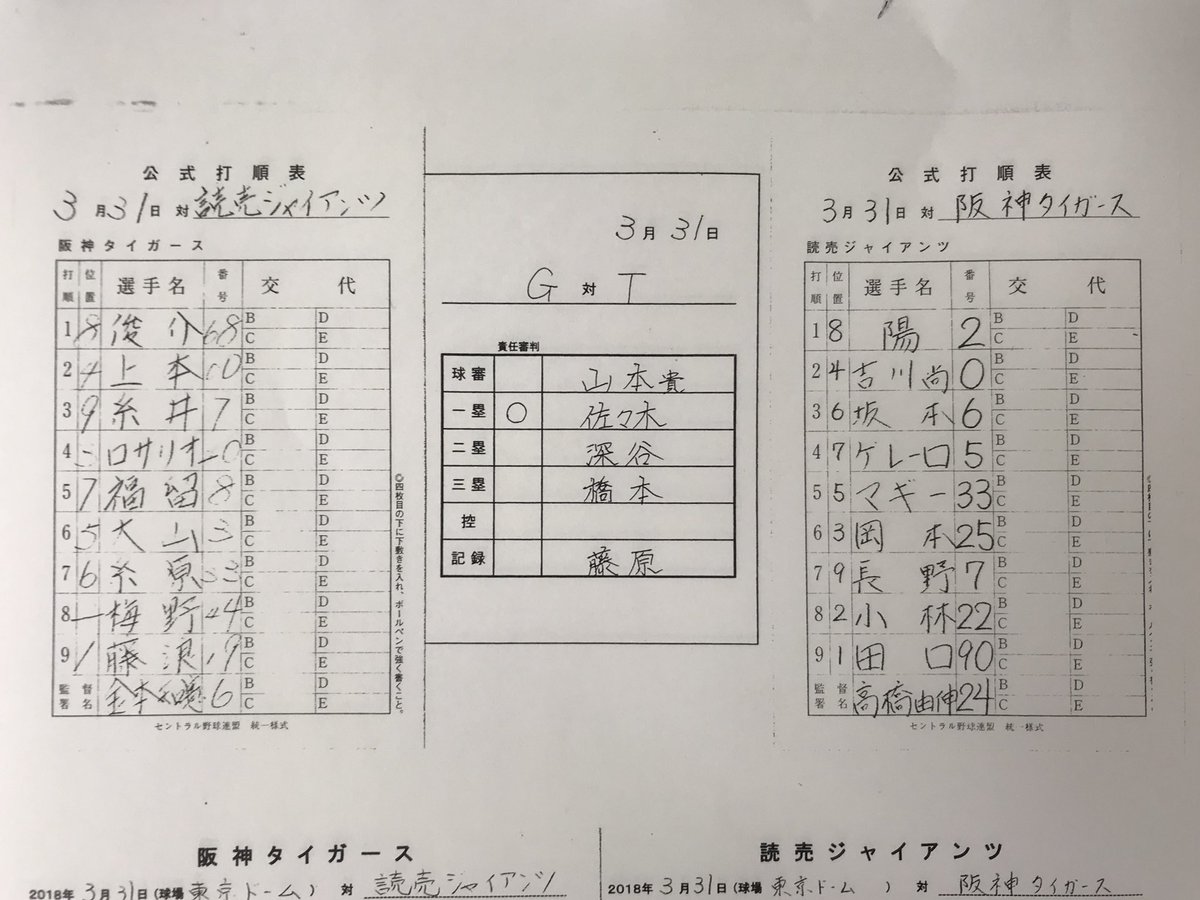 公式打順表
3月31日 対 読売ジャイアンツ
阪神タイガース
打順 位置 選手名 番号 交代
1 8 俊介 68 B D C E
2 4 上本 B D C E
3 9 糸井 7 B D C E
4 ロサリオ B D C E
5 7 福留 8 B D C E
6 5 大山 3 B D C E
7 6 糸原 B D C E
8 梅野 44 B D C E
9 1 藤浪 19 B D C E
監督署名 金本知憲 6 B D C E
セントラル野球連盟 統一様式
◎四枚目の下に下敷きを入れ、ボールペンで強く書くこと。
3月31日
G 対 T
責任審判
球審 山本貴
一塁 ○ 佐々木
二塁 深谷
三塁 橋本
控
記録 藤原
公式打順表
3月31日 対 阪神タイガース
読売ジャイアンツ
打順 位置 選手名 番号 交代
1 8 陽 2 B D C E
2 4 吉川尚 0 B D C E
3 6 坂本 6 B D C E
4 7 ゲレーロ 5 B D C E
5 5 マギー 33 B D C E
6 3 岡本 25 B D C E
7 9 長野 7 B D C E
8 2 小林 22 B D C E
9 1 田口 90 B D C E
監督署名 高橋由伸 24 B D C E
セントラル野球連盟 統一様式
阪神タイガース
2018年 3月31日(球場 東京ドーム) 対 読売ジャイアンツ
読売ジャイアンツ
2018年 3月31日(球場 東京ドーム) 対 阪神タイガース